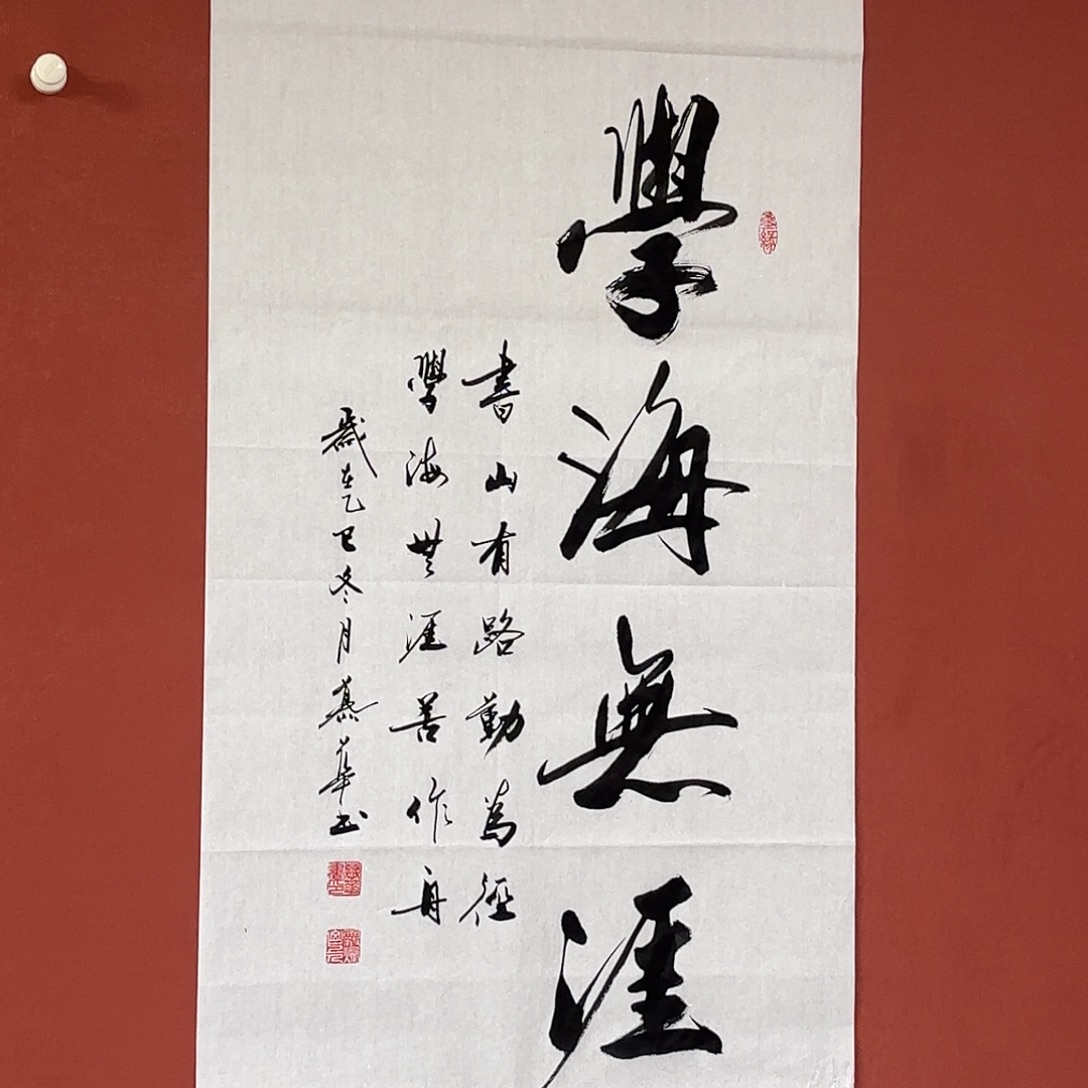 學海無涯
書山有路勤為徑
學海無涯善作舟
歲在乙巳冬月燕華书